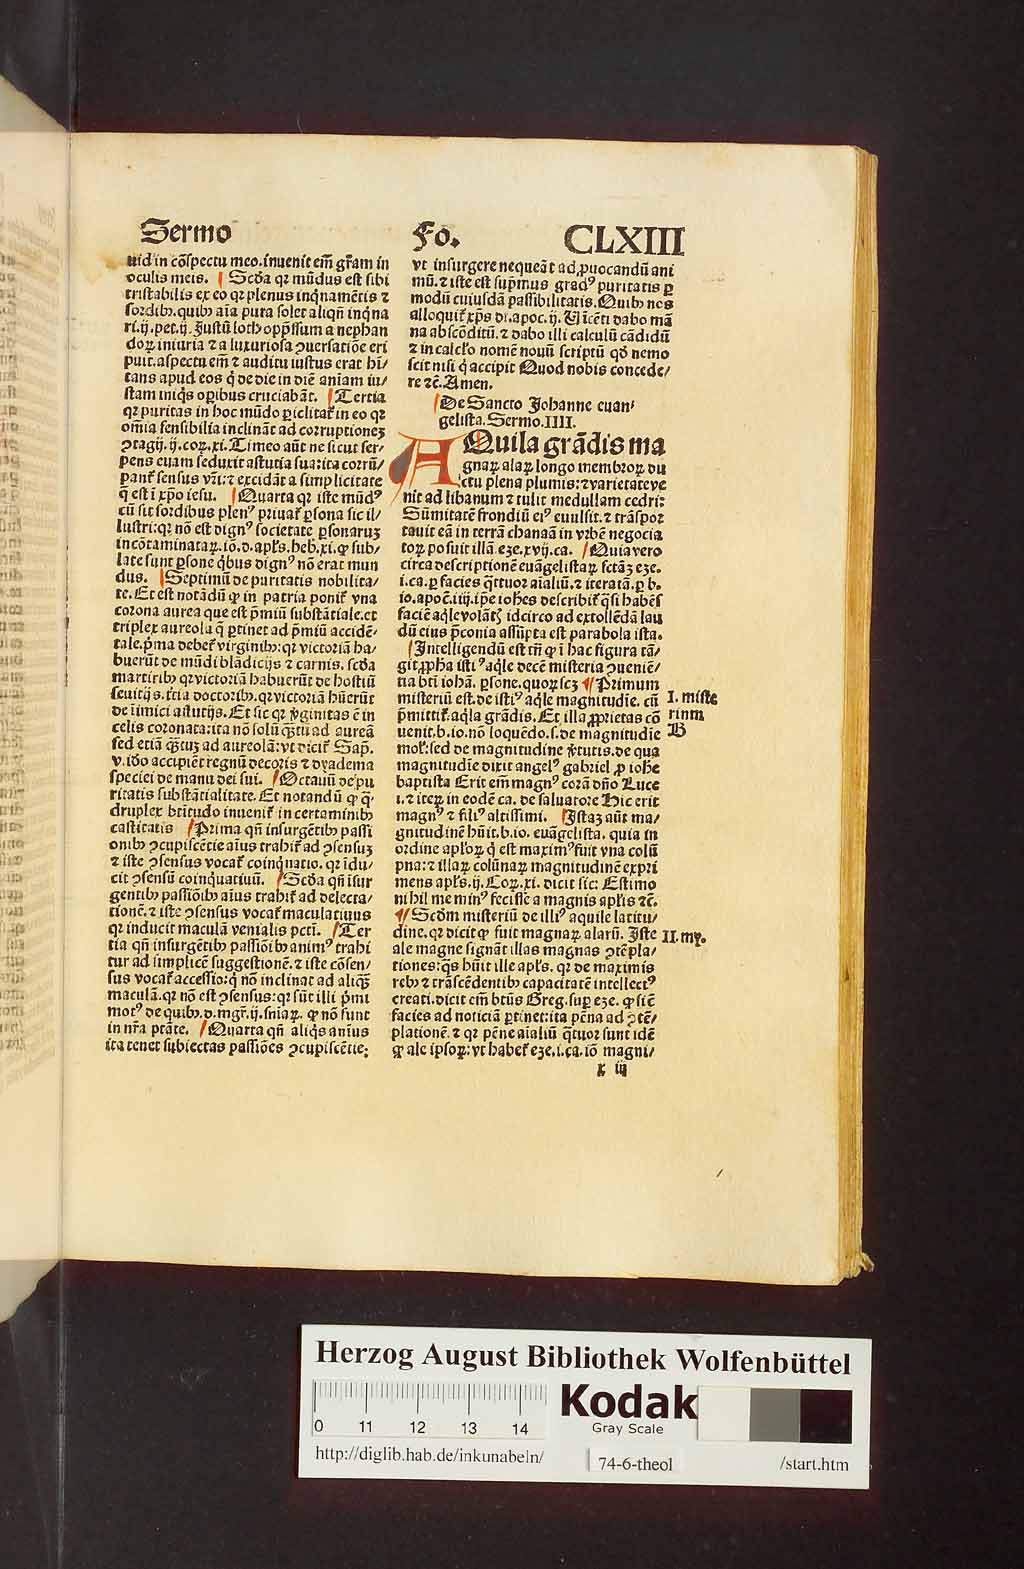 Sermo
Fo.
CLXIII
uid in cōspectu meo. inuenit em̄ gr̄am in
oculis meis. Scd̄a qr mūdus est sibi
tristabilis ex eo qr plenus inqnamētis ⁊
sordibꝫ. quibꝫ aīa pura solet aliqn̄ inqna
ri. ij. pet. ij. Justū loth opp̄ssum a nephan
doꝝ iniuria ⁊ a luxuriosa ꝯuersatiōe eri
puit. aspectu em̄ ⁊ auditu iustus erat hī/
tans apud eos q̇ de die in diē aniam iu/
stam iniq̇s oꝑibus cruciabāt. Tertia
qr puritas in hoc mūdo ꝑiclitat᷑ in eo qr
om̄ia sensibilia inclināt ad corruptionez
ꝯtagij. ij. coꝝ. xi. Timeo aūt ne sicut ser-
pens euam seduxit astutia sua: ita corrū/
pant᷑ sensus vr̄i: ⁊ excidāt a simplicitate
q̄ est ī xp̄o iesu. Quarta qr iste mūdꝰ
cū sit sordibus plenꝰ priuat᷑ ꝑsona sic il/
lustri: qr nō est dignꝰ societate ꝑsonaruꝫ
incōtaminataꝝ. io. d. apl̄s. heb. xi. ꝙ sub/
late sunt ꝑsone q̇bus dignꝰ nō erat mun
dus. Septimū de puritatis nobilita/
te. Et est notādū ꝙ in patria ponit᷑ vna
corona aurea que est p̄miū substātiale. et
triplex aureola q̄ ꝑtinet ad p̄miū accidē/
tale. p̄ma debet᷑ virginibꝫ: qr victoriā ha/
buerūt de mūdi blādicijs ⁊ carnis. scd̄a
martiribꝫ qr victoriā habuerūt de hostiū
seuitijs. t̄tia doctoribꝫ. qr victoriā hūerūt
de īimici astutijs. Et sic qr v̓ginitas ē in
celis coronata: ita nō solū q̄ꝫtū ad aureā
sed etiā q̄ꝫtuꝫ ad aureolā: vt dicit᷑ Sap̄.
v. iō accipiēt regnū decoris ⁊ dyadema
speciei de manu dei sui. Octauū de pu
ritatis substātialitate. Et notandū ꝙ q̄
druplex btītudo inuenit᷑ in certaminibꝫ
castitatis Prima qn̄ insurgētibꝫ passi
onibꝫ ꝯcupiscētie aīus trahit᷑ ad ꝯsensuꝫ
⁊ iste ꝯsensus vocat᷑ coinquatio. qr īdu/
cit ꝯsensū coinquatiuū. Scd̄a qn̄ īsur
gentibꝫ passiōibꝫ aīus trahit᷑ ad delecta/
tionē. ⁊ iste ꝯsensus vocat᷑ maculatiuus
qr inducit maculā venialis pcti̅. Ter
tia qn̄ insurgētibꝫ passiōibꝫ animꝰ trahi
tur ad simplicē suggestionē. ⁊ iste cōsen/
sus vocat᷑ accessio: q̇ nō inclinat ad aliq̄ꝫ
maculā. qr nō est ꝯsensus: qr sūt illi p̄mi
motꝰ de quibꝫ. d. mgr̄. ij. sniaꝝ. ꝙ nō sunt
in nr̄a ptāte. Quarta qn̄ aliq̇s animus
ita tenet subiectas passiōes ꝯcupiscētie;
vt insurgere nequeāt ad ꝓuocandū ani
mū. ⁊ iste est sup̄mus gradꝰ puritatis ꝑ
modū cuiusdā passibilitatis. Quibꝫ nos
alloquit᷑ xp̄s dī. apoc. ij. Vīcēti dabo mā
na abscōditū. ⁊ dabo illi calculū cādidū
⁊ in calclo nomē nouū scriptū qd̄ nemo
scit nisi q̇ accipit Quod nobis concede/
re ⁊c̄. Amen.
De Sancto Johanne euan/
gelista. Sermo. IIII.
AQuila grādis ma
gnaꝝ alaꝝ longo membroꝝ du
ctu plena plumis: ⁊ varietate ve
nit ad libanum ⁊ tulit medullam cedri:
Sūmitatē frondiū eiꝰ euulsit. ⁊ trāspor
tauit eā in terrā chanaā in vrbē negocia
toꝝ posuit illā eze. xvij. ca. Quia vero
circa descriptionē euāgelistaꝝ fctāꝫ eze.
i. ca. ꝑ facies q̄ttuor aīaliū. ⁊ iteratā. ꝑ b.
io. apoc̄. iiij. ip̄e iohēs describit᷑ q̄si habēs
faciē aq̇le volātꝭ idcirco ad extollēdā lau
dū eius p̄conia assūpta est parabola ista.
Intelligendū est tn̄ ꝙ ī hac figura tā/
git ꝓpha istiꝰ aq̇le decē misteria ꝯueniē/
tia btī iohā. ꝑsone. quoꝝ scꝫ Primum
misteriū est. de istiꝰ aq̇le magnitudīe. cū
p̄mittit᷑. aq̇la grādis. Et illa ꝓprietas cō
uenit. b. io. nō loquēdo. s. de magnitudīe
mol᷑: sed de magnitudine v̓tutis. de qua
magnitudīe dixit angelꝰ gabriel ꝓ iohe
baptista Erit em̄ magnꝰ corā dn̄o Luce
i. ⁊ iteꝝ in eodē ca. de saluatore Hic erit
magnꝰ ⁊ filiꝰ altissimi. Istaꝫ aūt ma/
gnitudinē hūit. b. io. euāgelista. quia in
ordine apl̄oꝝ q̇ est maximꝰ fuit vna colū
pna: ⁊ illaꝝ colūnaꝝ magnitudinē expri
mens apl̄s. ij. Coꝝ. xi. dicit sic: Estimo
nihil me minꝰ fecisse a magnis apl̄is ⁊c̄.
Scdm misteriū de illiꝰ aquile latitu/
dine. qr dicit ꝙ fuit magnaꝝ alarū. Iste
ale magne signāt illas magnas ꝯtēpla/
tiones: q̄s hūit ille apl̄s. qr de maximis
rebꝫ ⁊ trāscēdentibꝫ capacitatē intellectꝰ
creati. dicit em̄ btūs Greg. suꝑ eze. ꝙ siē
facies ad noticiā ꝑtinet: ita pēna ad ꝯtē/
platione. ⁊ qr pēne aīaliū q̄ttuor sunt idē
ꝙ ale ipsoꝝ: vt habet᷑ eze. i. ca. iō magni/
x iij
I. miste
rium
B
II. my.
Herzog August Bibliothek Wolfenbüttel
0 11 12 13 14
Kodak
Gray Scale
http://diglib.hab.de/inkunabeln/
74-6-theol
/start.htm